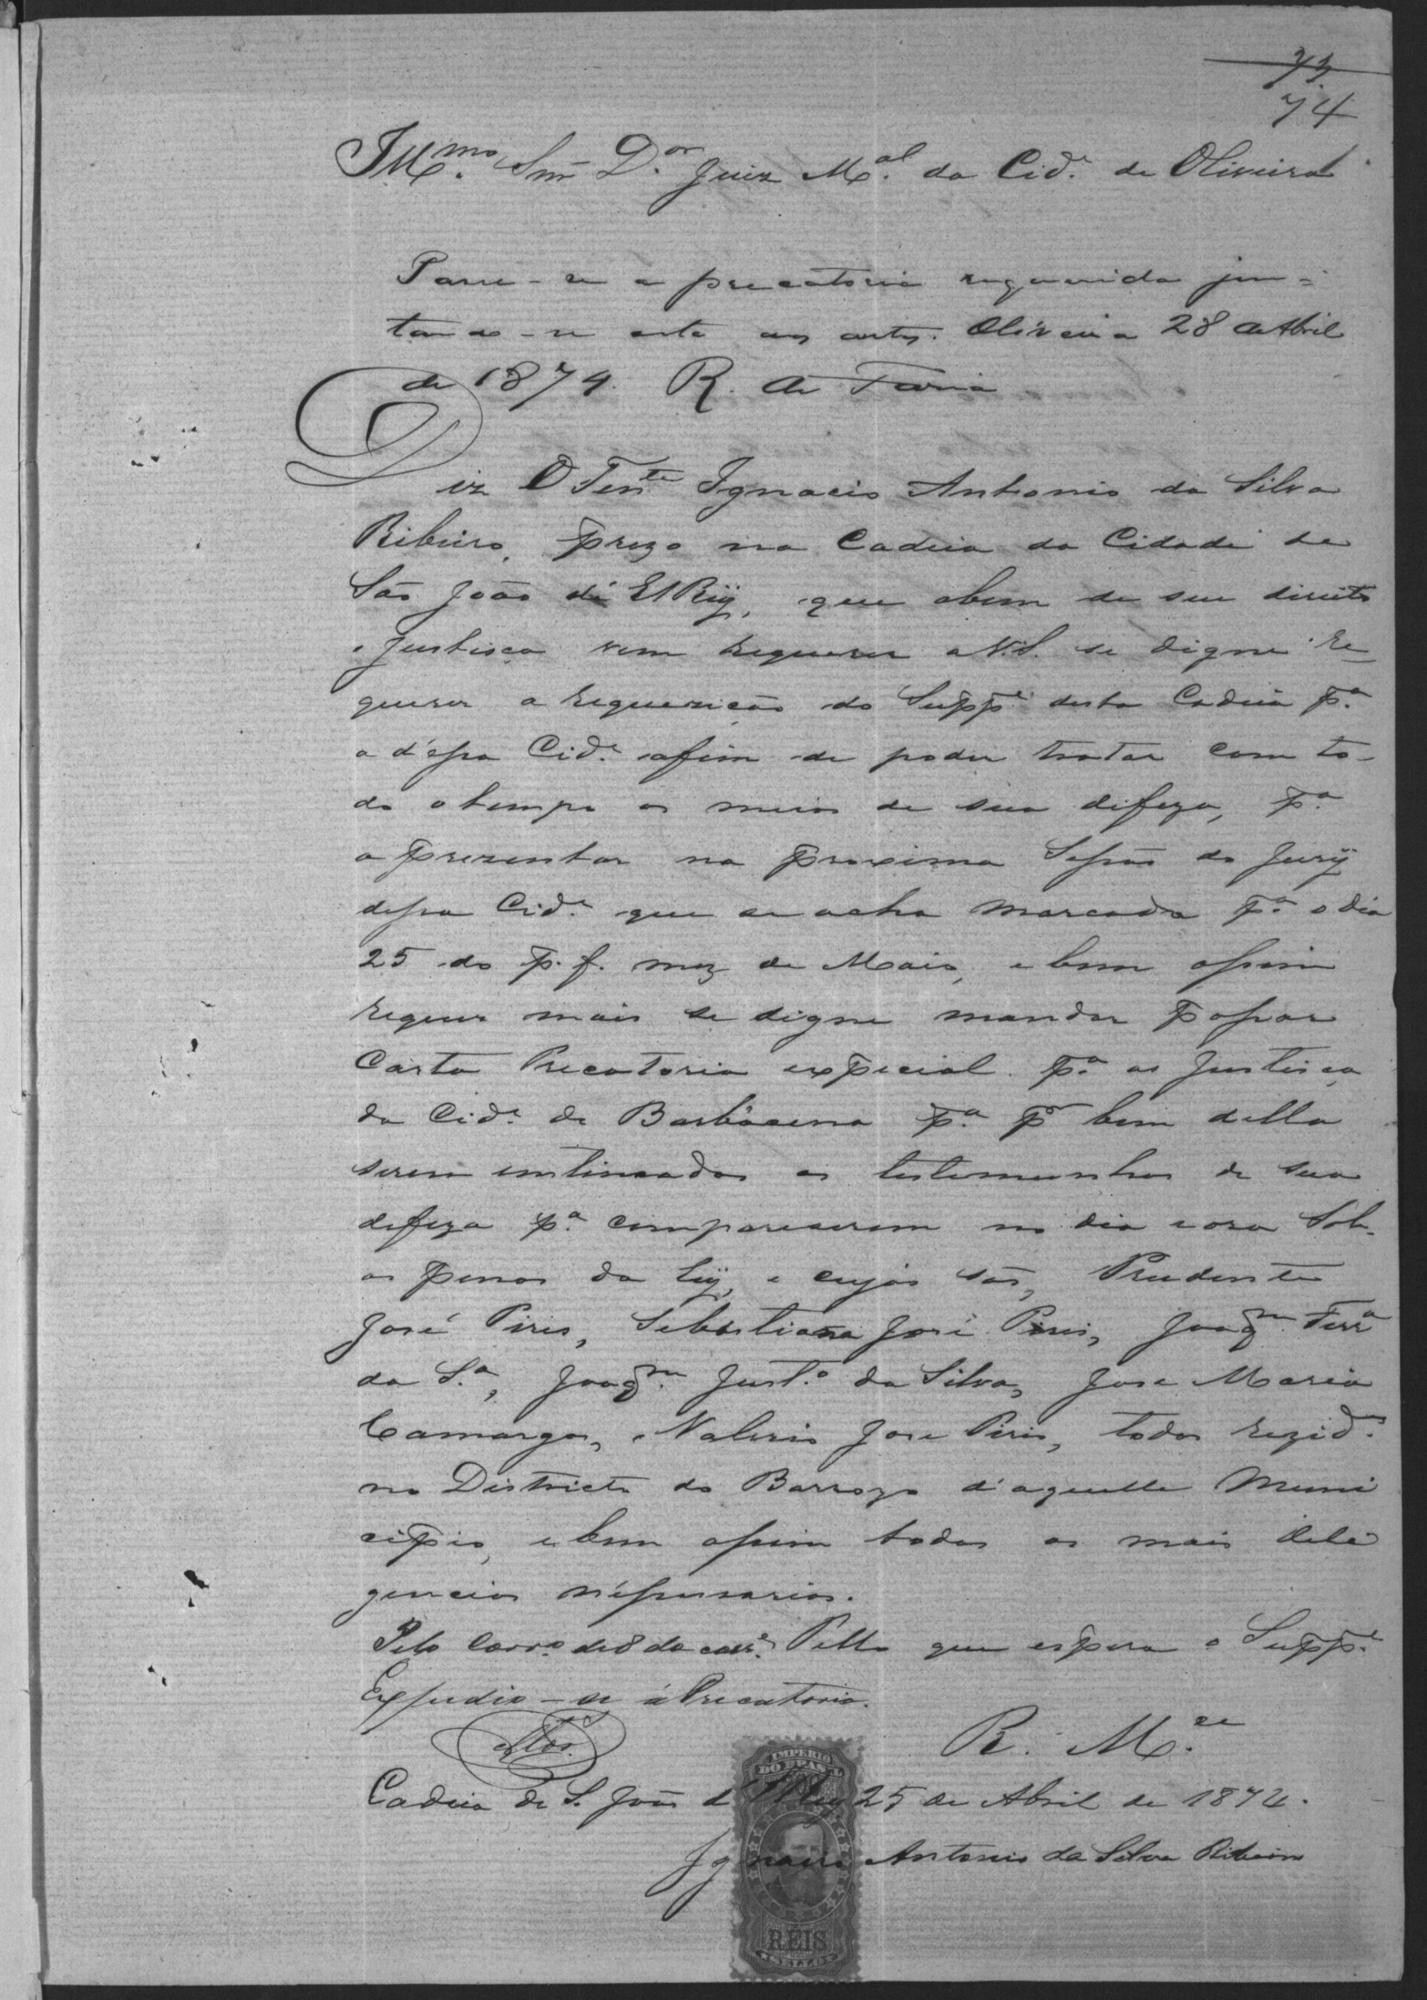 73
74
Illmo. Snr. Dor. Juiz Mal. da Cide. de Oliveira
Passe-se a precatoria requerida jun=
tando-se esta aos autos. Oliveira 28 de Abril
de 1874. R. de Faria
Diz O Tente Ignacio Antonio da Silva
Ribeiro, prezo na Cadeia da Cidade de
São João dé El Rÿ, que abem de seu direito
e justisça vem requerer a V.S. se digne re-
querer a requezicão do Suppe. desta Cadeia pa.
a d'essa Cide. afim de poder tratar com to-
do o tempo os meios de sua difeza, pa.
aprezentar na proxima Sessão do Jury
dessa Cide. que se acha marcada pa. o dia
25 do p. f. mez de Maio, e bem assim
requer mais se digne mandar passar
Carta Precatoria especial pa. as Justiças
da Cide. de Barbacena pa. pr bem della
serem intimadas as testemunhas de sua
defeza pa. compareserem no dia e ora Sob-
as penas da Lÿ, e cujas são, Prudente
José Pires, Sebastiana José Pires, Joaqm Ferra
da Sa., Joaqm. Justo. da Silva, Jose Maria
Camargos, Valerio Jose Piris, todos rezide.
no Districto do Barrozo d'aquelle Muni
cipio, e bem assim todas as mais deli
gencias néssesarias.
Pelo Corro. de 8 do corre. P. Dto que espera o Suppe.
Expedio-se á Precatoria.
R. Mce.
IMPERIO
DO BRASIL
Cadeia de S. João d'El Rey 25 de Abril de 1874.
Ignacio Antonio da Silva Ribeiro
RÉIS